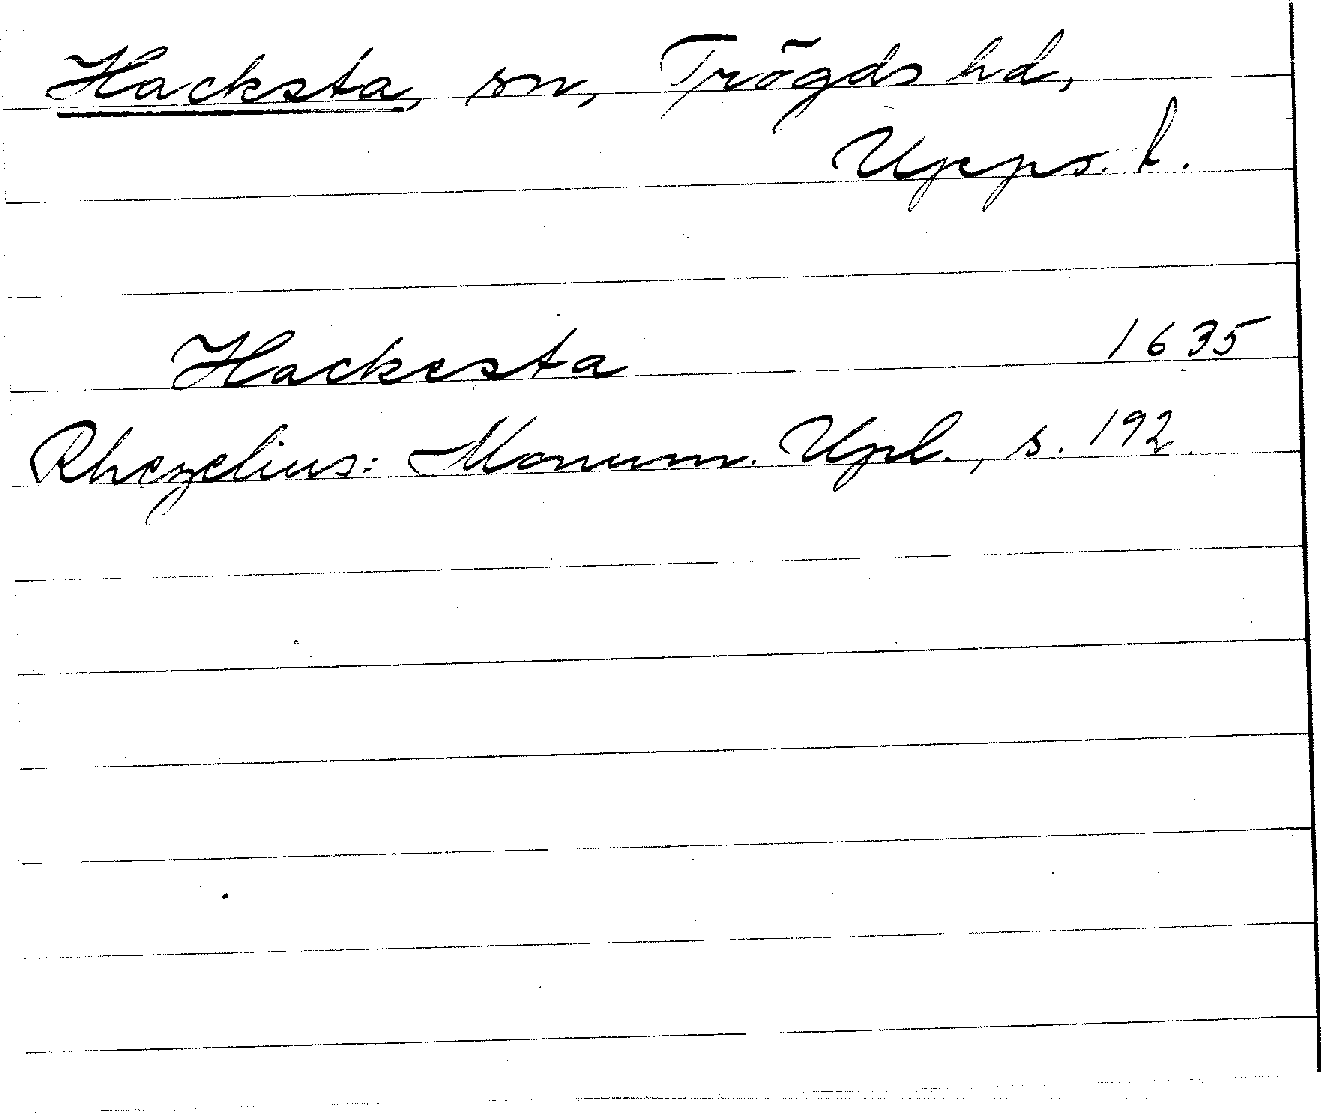 Hacksta, sn, Trögds hd,
Upps. l.
Hackesta 1635
Rhezelius: Monum. Upl., s. 192.